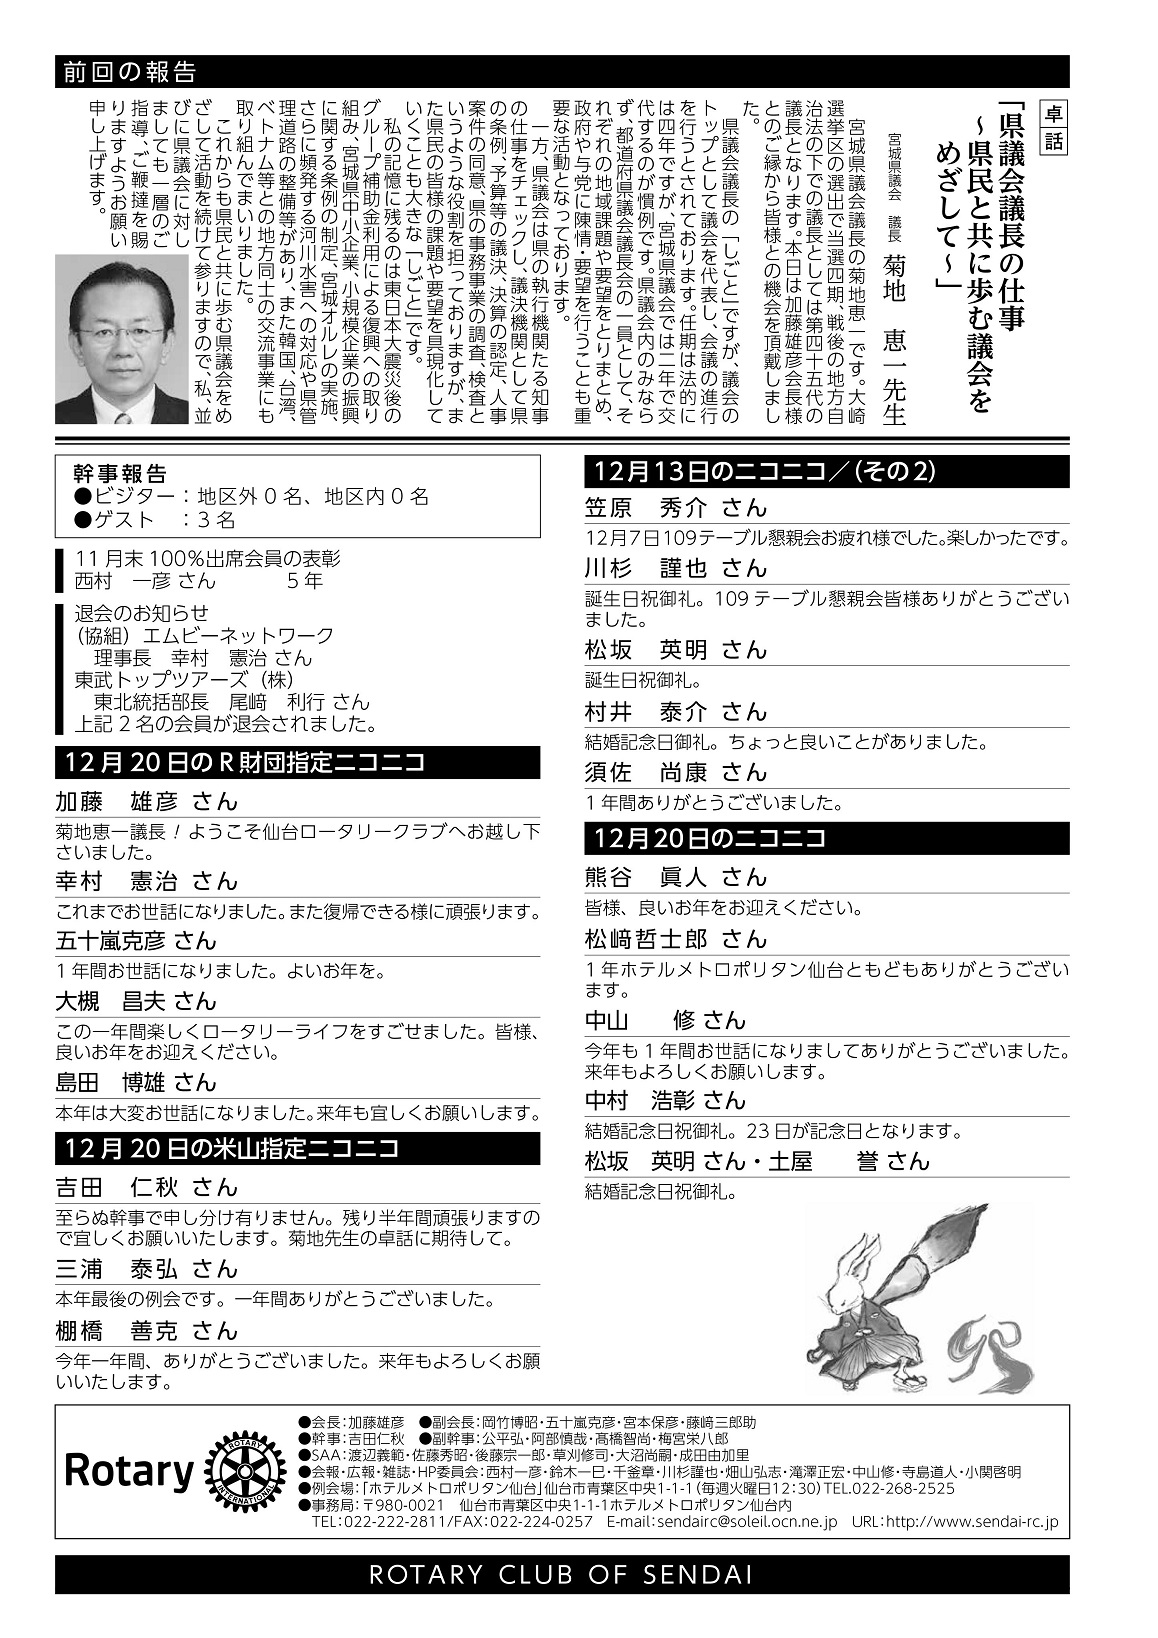 前回の報告
卓話
「県議会議長の仕事
～県民と共に歩む議会を
めざして～」
宮城県議会　議長　菊地　恵一先生
宮城県議会議長の菊地恵一です。大崎
選挙区の選出で当選四期、戦後の地方自
治法の下での議長としては第四十五代の
議長となります。本日は加藤雄彦会長様
とのご縁から皆様との機会を頂戴しまし
た。
県議会議長の「しごと」ですが、議会の
トップとして議会を代表し、会議の進行
を行うとされております。任期は法的に
は四年ですが、宮城県議会では二年で交
代するのが慣例です。県議会内のみなら
ず、都道府県議会議長会の一員として、そ
れぞれの地域課題や要望をとりまとめ、
政府や与党に陳情・要望を行うことも重
要な活動となっております。
一方、県議会は県の執行機関たる知事
の仕事をチェックし、議決機関として県
の条例、予算等の議決、決算の認定、人事
案件の同意、県の事務事業の調査、検査と
いうような役割を担っておりますが、ま
た県民の皆様の課題や要望を具現化して
いくことも大きな「しごと」です。
私の記憶に残るのは東日本大震災後の
グループ補助金利用による復興への取り
組み、宮城県中小企業、小規模企業の振興
に関する条例の制定、宮城オルレの実施、
さらに頻発する河川水害への対応や県管
理道路の整備等があり、また韓国、台湾、
ベトナム等との地方同士の交流事業にも
取り組んでまいりました。
これからも県民と共に歩む県議会をめ
ざして活動を続けて参りますので、私、並
びに県議会に対し
ましても一層のご
指導、ご鞭撻を賜
りますようお願い
申し上げます。
幹事報告
●ビジター：地区外 0 名、地区内 0 名
●ゲスト　：3 名
11 月末 100%出席会員の表彰
西村　一彦 さん　　　5 年
退会のお知らせ
（協組）エムビーネットワーク
理事長　幸村　憲治 さん
東武トップツアーズ（株）
東北統括部長　尾﨑　利行 さん
上記 2 名の会員が退会されました。
12 月 20 日の R 財団指定ニコニコ
加藤　雄彦 さん
菊地恵一議長！ようこそ仙台ロータリークラブへお越し下
さいました。
幸村　憲治 さん
これまでお世話になりました。また復帰できる様に頑張ります。
五十嵐克彦 さん
1 年間お世話になりました。よいお年を。
大槻　昌夫 さん
この一年間楽しくロータリーライフをすごせました。皆様、
良いお年をお迎えください。
島田　博雄 さん
本年は大変お世話になりました。来年も宜しくお願いします。
12 月 20 日の米山指定ニコニコ
吉田　仁秋 さん
至らぬ幹事で申し分け有りません。残り半年間頑張りますの
で宜しくお願いいたします。菊地先生の卓話に期待して。
三浦　泰弘 さん
本年最後の例会です。一年間ありがとうございました。
棚橋　善克 さん
今年一年間、ありがとうございました。来年もよろしくお願
いいたします。
12月13日のニコニコ／（その2）
笠原　秀介 さん
12月7日109テーブル懇親会お疲れ様でした。楽しかったです。
川杉　謹也 さん
誕生日祝御礼。109 テーブル懇親会皆様ありがとうござい
ました。
松坂　英明 さん
誕生日祝御礼。
村井　泰介 さん
結婚記念日御礼。ちょっと良いことがありました。
須佐　尚康 さん
1 年間ありがとうございました。
12月20日のニコニコ
熊谷　眞人 さん
皆様、良いお年をお迎えください。
松﨑哲士郎 さん
1 年ホテルメトロポリタン仙台ともどもありがとうござい
ます。
中山　　修 さん
今年も 1 年間お世話になりましてありがとうございました。
来年もよろしくお願いします。
中村　浩彰 さん
結婚記念日祝御礼。23 日が記念日となります。
松坂　英明 さん・土屋　　誉 さん
結婚記念日祝御礼。
Rotary
ROTARY
INTERNATIONAL
●会長：加藤雄彦　●副会長：岡竹博昭・五十嵐克彦・宮本保彦・藤﨑三郎助
●幹事：吉田仁秋　●副幹事：公平弘・阿部慎哉・髙橋智尚・梅宮栄八郎
●SAA：渡辺義範・佐藤秀昭・後藤宗一郎・草刈修司・大沼尚嗣・成田由加里
●会報・広報・雑誌・HP委員会：西村一彦・鈴木一巳・千釜章・川杉謹也・畑山弘志・滝澤正宏・中山修・寺島道人・小関啓明
●例会場：「ホテルメトロポリタン仙台」仙台市青葉区中央1-1-1（毎週火曜日12：30）TEL.022-268-2525
●事務局：〒980-0021　仙台市青葉区中央1-1-1ホテルメトロポリタン仙台内
TEL：022-222-2811/FAX：022-224-0257　E-mail：sendairc@soleil.ocn.ne.jp　URL：http://www.sendai-rc.jp
ROTARY CLUB OF SENDAI